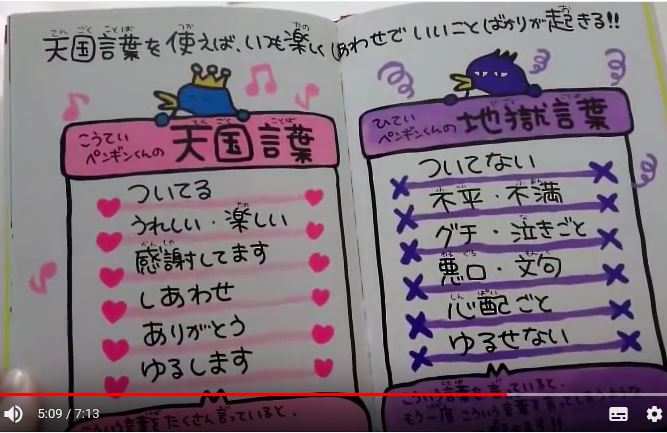 天国言葉を使えば、いつも楽しくしあわせでいいことばかりが起きる!!
こうてい
ペンギンくんの天国言葉
ついてる
うれしい・楽しい
感謝してます
しあわせ
ありがとう
ゆるします
こういう言葉をたくさん言っていると、
ひてい
ペンギンくんの地獄言葉
ついてない
不平・不満
グチ・泣きごと
悪口・文句
心配ごと
ゆるせない
こういう言葉を言っていると、
もう一度こういう言葉を言ってしまうような
5:09 / 7:13